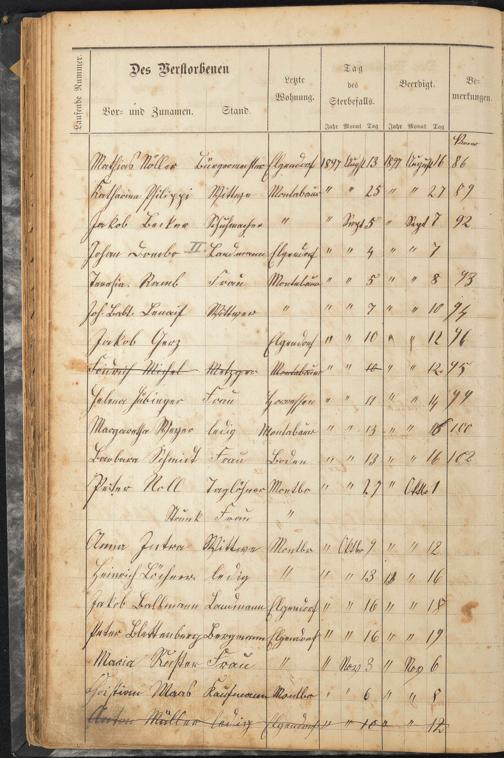 Laufende Nummer.
Des Verstorbenen
Vor- und Zunamen. Stand.
Letzte Wohnung.
Tag des Sterbefalls.
Jahr Monat Tag
Beerdigt.
Jahr Monat Tag
Bemerkungen.
Mathias Nöller Bürgermeister Elgendorf 1897 August 13 1897 August 16 86
Katharina Philippi Wittwe Montabaur " " 25 " " 27 89
Jakob Becker Schuhmacher " " Sept 5 " Sept 7 92
Johan II Landmann Elgendorf " " 4 " " 7
Frau Montabaur " " 5 " " 8 93
Joh. Bapt. Wittwer " " " 7 " " 10 94
Jakob Gerz Elgendorf " " 10 " " 12 96
Michel Metzger Montabaur " " " " 12 95
Helena Frau " " 11 " " 14 99
Margaretha Meyer ledig Montabaur " " 13 " " 100
Barbara Schmidt Frau Boden " " 13 " " 16 102
Peter Noll Taglöhner Montbr " " 27 " Oktbr 1
Frau "
Anna Wittwe Montbr " Oktbr 9 " " 12
Heinrich ledig " " " 13 " " 16
Jakob Landmann Elgendorf " " 16 " " 18
Peter Blettenberg Bergmann Elgendorf " " 16 " " 19
Maria Frau " " Nov 3 " Nov 6
Christian Maas Kaufmann Montbr " " 6 " " 8
Anton Müller ledig Elgendorf " " 10 " " 12